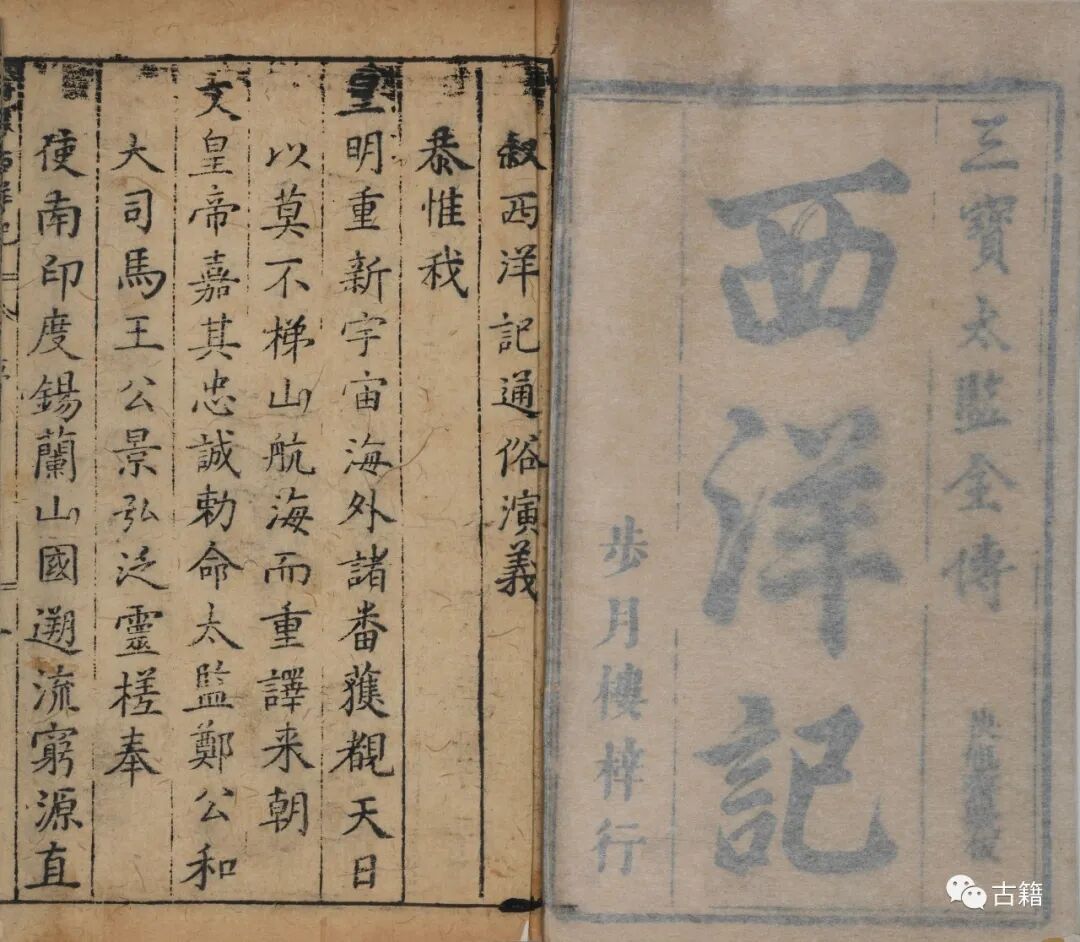 三寶太監全傳
西洋記
步月樓梓行
敘西洋記通俗演義
恭惟我
皇明重新宇宙海外諸番獲覩天日
以莫不梯山航海而重譯来朝
文皇帝嘉其忠誠勅命太監鄭公和
大司馬王公景弘泛靈槎奉
使南印度錫蘭山國遡流窮源直
古籍